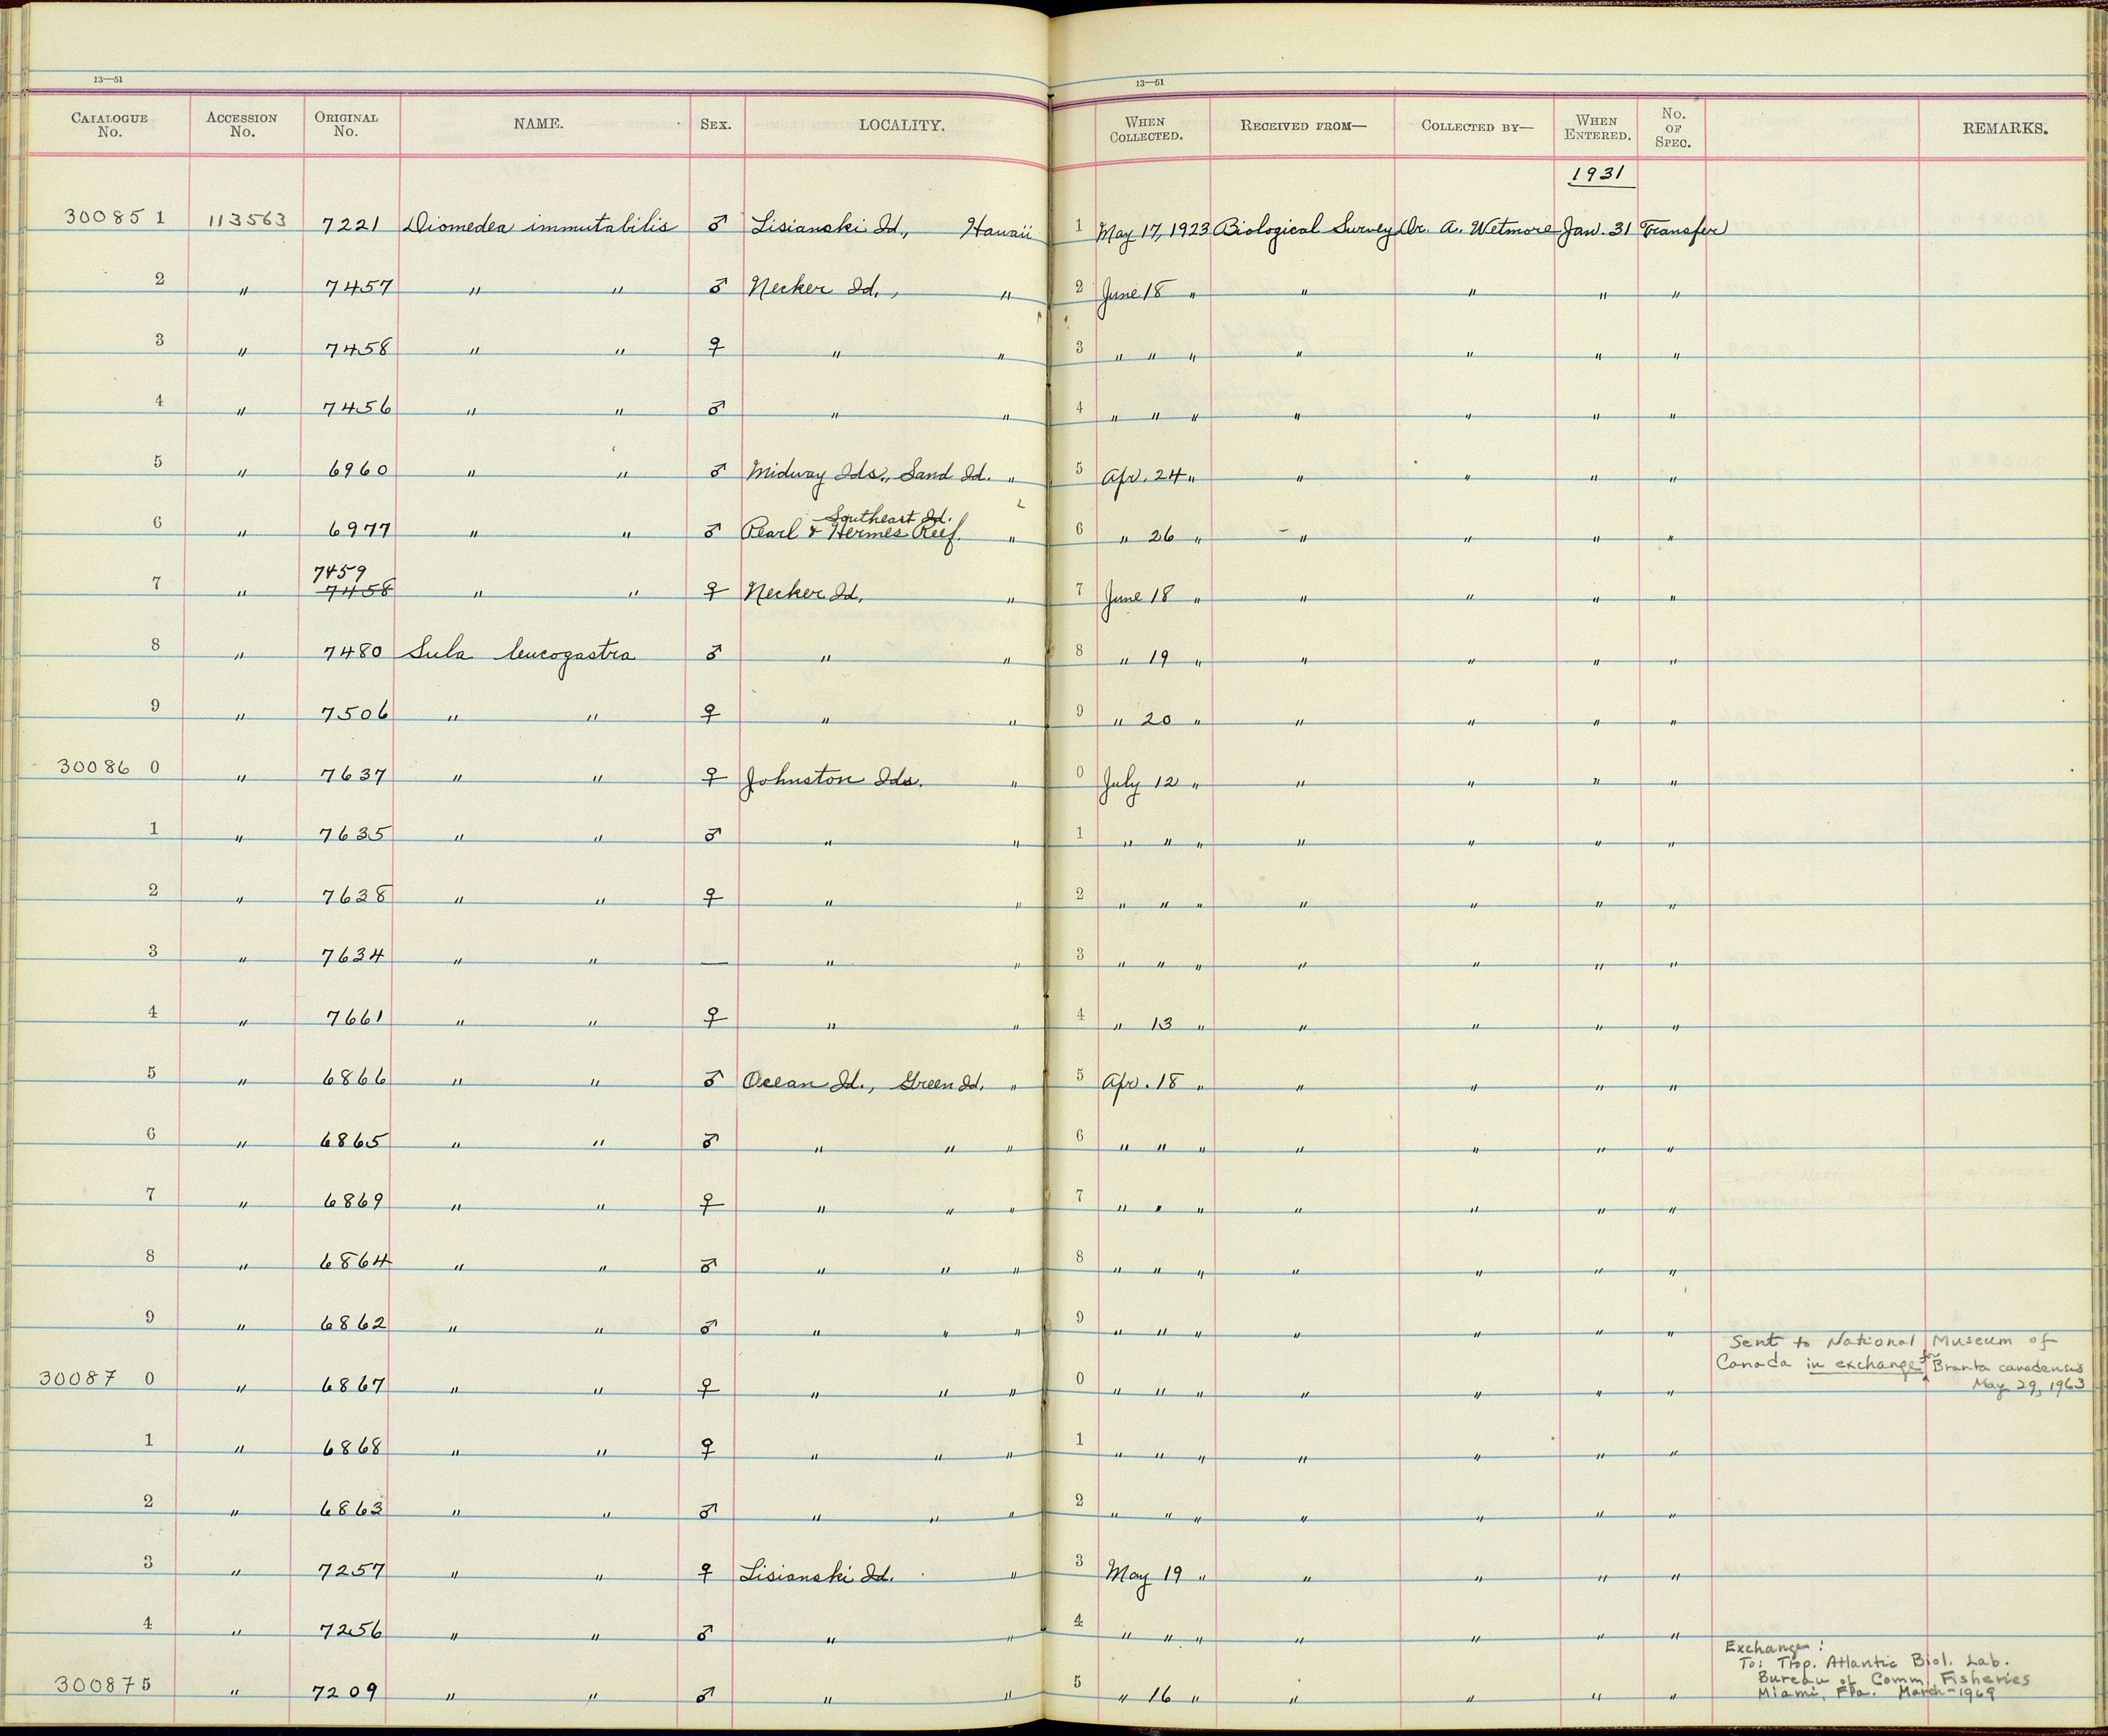 13—51 13—51
CATALOGUE No. ACCESSION No. ORIGINAL No. NAME. SEX. LOCALITY. WHEN COLLECTED. RECEIVED FROM— COLLECTED BY— WHEN ENTERED. No. OF SPEC. REMARKS.
1931
300851 113563 7221 Diomedea immutabilis ♂ Lisianski Id., Hawaii 1 May 17, 1923 Biological Survey Dr. A. Wetmore Jan. 31 Transfer
2 " 7457 " " ♂ Necker Id., " 2 June 18 " " " " "
3 " 7458 " " ♀ " " 3 " " " " " " "
4 " 7456 " " ♂ " " 4 " " " " " " "
5 " 6960 " " ♂ Midway Ids., Sand Id. " 5 Apr. 24 " " " " "
Southeast Id.
6 " 6977 " " ♂ Pearl & Hermes Reef. " 6 " 26 " " " " "
7459
7 " 7458 " " ♀ Necker Id. " 7 June 18 " " " " "
8 " 7480 Sula leucogastra ♂ " " 8 " 19 " " " " "
9 " 7506 " " ♀ " " 9 " 20 " " " " "
300860 " 7637 " " ♀ Johnston Ids. " 0 July 12 " " " " "
1 " 7635 " " ♂ " " 1 " " " " " " "
2 " 7638 " " ♀ " " 2 " " " " " " "
3 " 7634 " " — " " 3 " " " " " " "
4 " 7661 " " ♀ " " 4 " 13 " " " " "
5 " 6866 " " ♂ Ocean Id., Green Id. " 5 Apr. 18 " " " " "
6 " 6865 " " ♂ " " " 6 " " " " " " "
7 " 6869 " " ♀ " " " 7 " " " " " " "
8 " 6864 " " ♂ " " " 8 " " " " " " "
9 " 6862 " " ♂ " " " 9 " " " " " " "
Sent to National Museum of
Canada in exchange for Branta canadensis
300870 " 6867 " " ♀ " " " 0 " " " " " " " May 29, 1963
1 " 6868 " " ♀ " " " 1 " " " " " " "
2 " 6863 " " ♂ " " " 2 " " " " " " "
3 " 7257 " " ♀ Lisianski Id. " 3 May 19 " " " " "
4 " 7256 " " ♂ " " 4 " " " " " " "
Exchange:
To: Trop. Atlantic Biol. Lab.
Bureau of Comm. Fisheries
300875 " 7209 " " ♂ " " 5 " 16 " " " " " Miami, Fla. March-1969